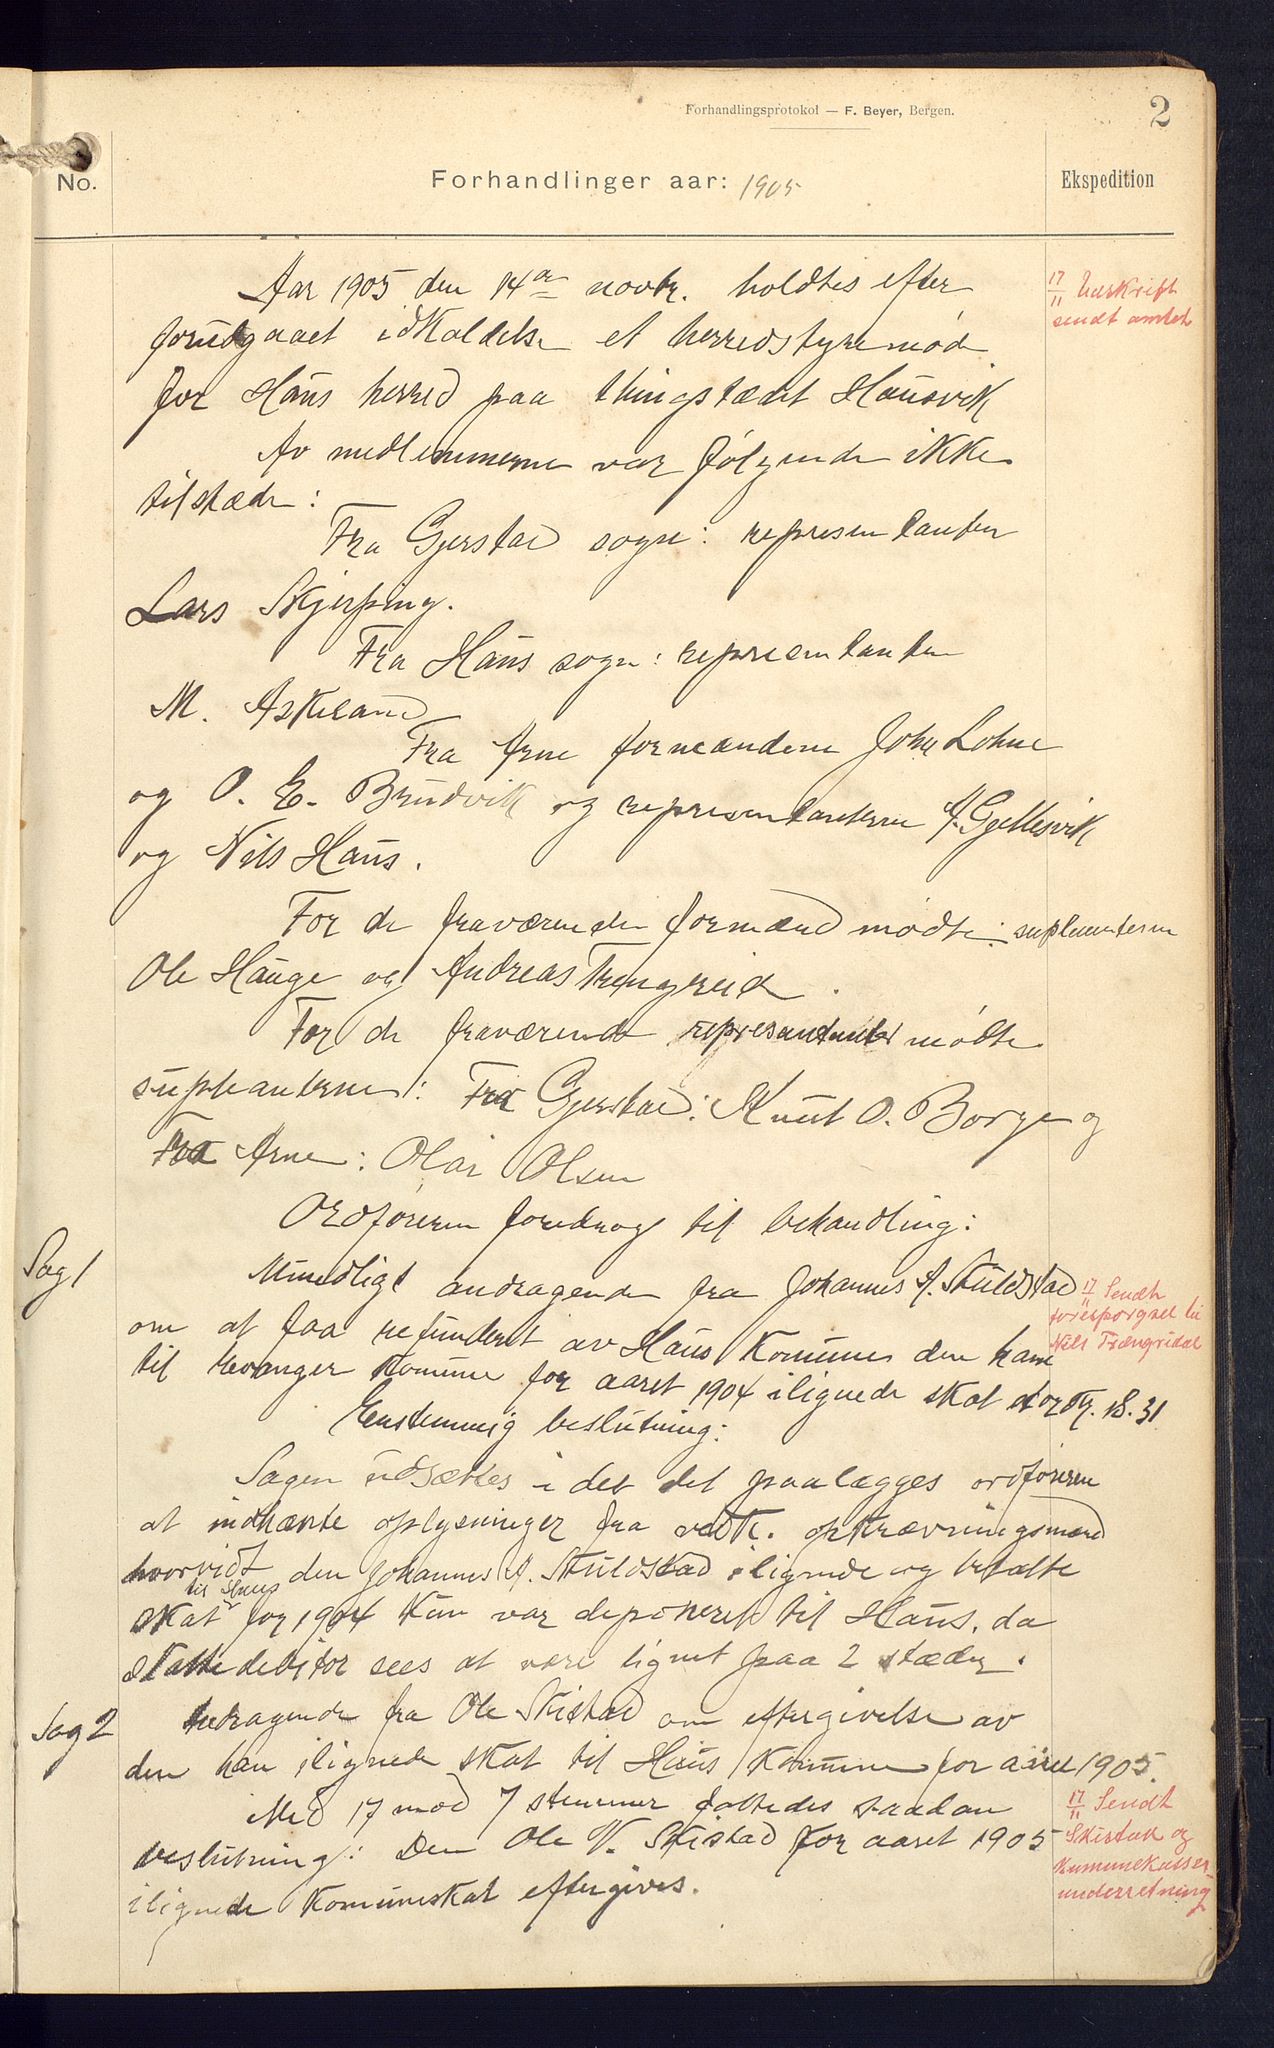 Forhandlingsprotokol — F. Beyer, Bergen.
2
No.
Forhandlinger aar: 1905
Ekspedition
Aar 1905 den 14de novbr. holdtes efter
forudgaaet idkaldelse et herredstyremøde
for Haus herred paa thingstædet Hausvik
17/11 Utskrift
sendt amtet
Av medlemmerne var følgende ikke
tilstæde:
Fra Gjerstad sogn: representanten
Lars Skjerping.
Fra Haus sogn: representanten
M. Askeland
Fra Arne formændene John Lohne
og O. E. Brudvik og representanterne A. Gjellesvik
og Nils Haus.
For de fraværende formænd mødte: suplenterne
Ole Hauge og Andreas Trengereid.
For de fraværende representanter mødte
supleanterne: Fra Gjerstad: Knut O. Borge og
Fra Arne: Olai Olsen
Ordføreren foredrog til behandling:
Sag 1
Mundligt andragende fra Johannes A. Skuldstad
om at faa refunderet av Haus Komune den ham
til Evanger Komune for aaret 1904 ilignede skat stor kr. 18.31
17/11 Sendt
forespørgsel til
Nils Trængereidal
Enstemmig beslutning:
Sagen udsættes i det det paalægges ordføreren
at indhænte oplysninger fra vedk. opkrævningsmænd
hvorvidt den Johannes A. Skuldstad ilignede og betalte
skat til Haus for 1904 kun var deponeret til Haus, da
skattedebitor sees at være lignet paa 2 stæder.
Sag 2
Andragende fra Ole Skistad om eftergivelse av
den han ilignede skat til Haus Komune for aaret 1905.
Med 17 mod 7 stemmer fattedes saadan
beslutning: Den Ole N. Skistad for aaret 1905
ilignede Komuneskat eftergives.
17/11 Sendt
Skistad og
Kumunekasser-
underretning